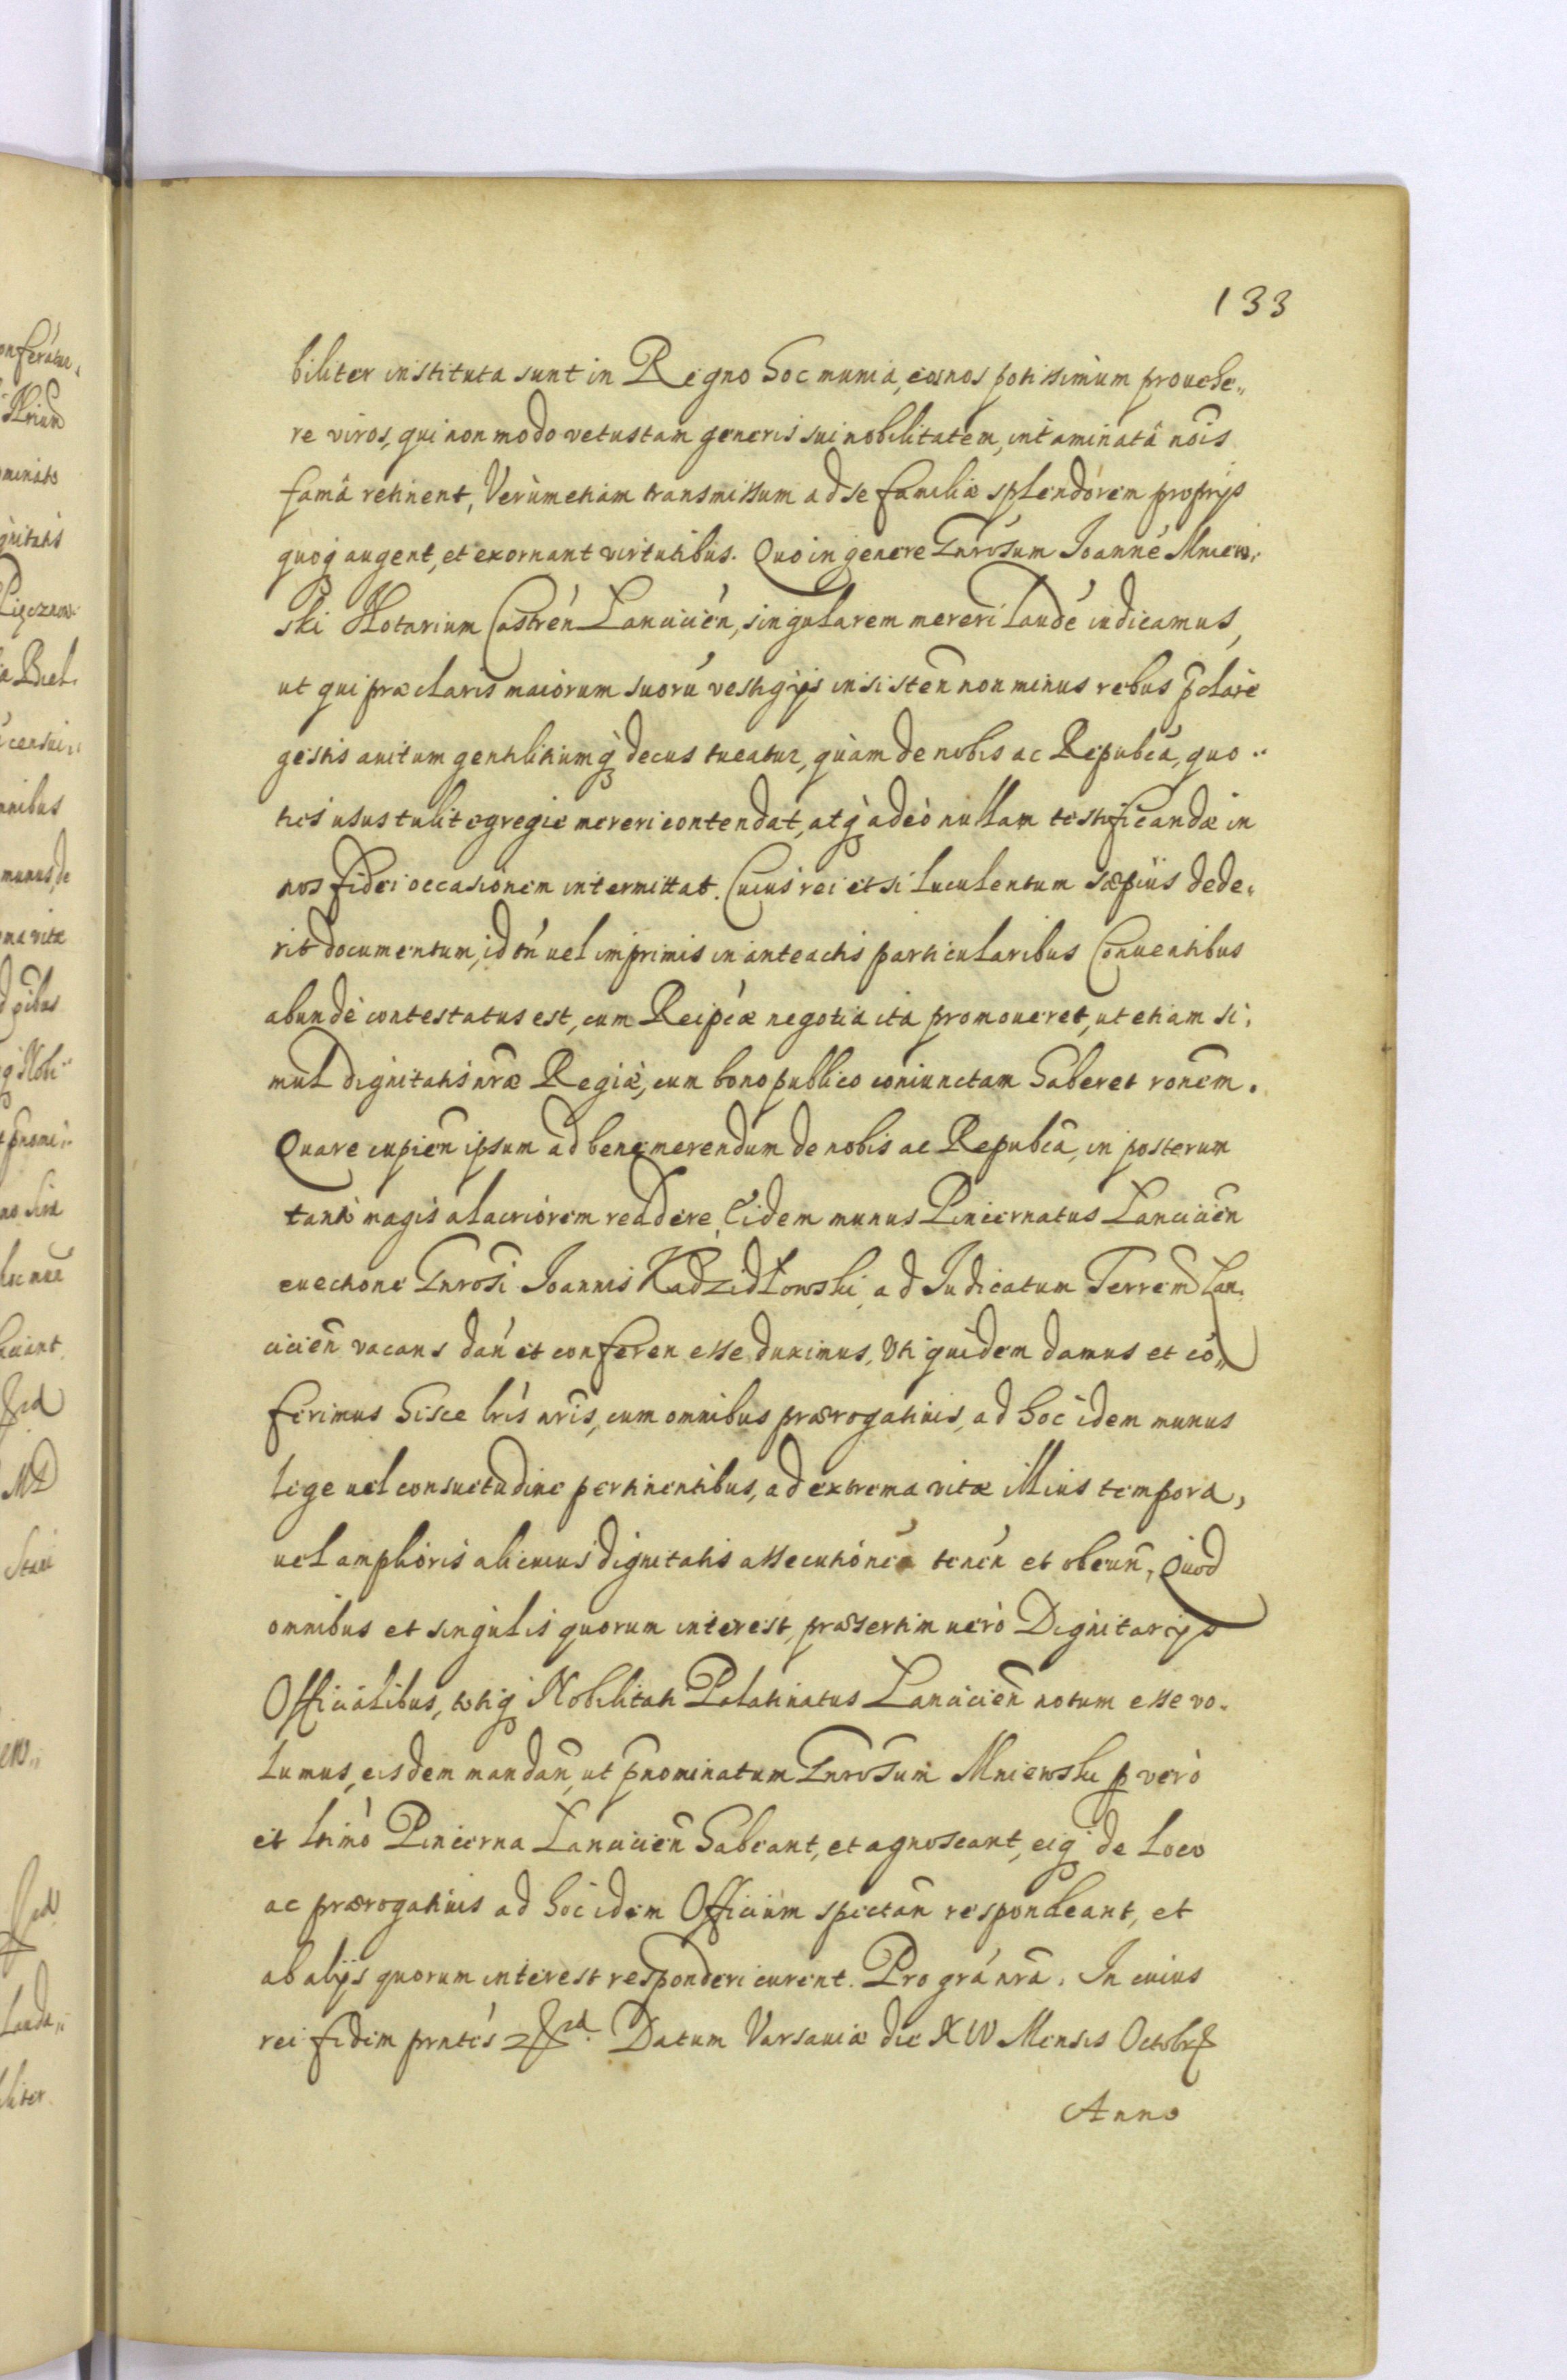 133
biliter instituta sunt in Regno hoc munia, eos nos potissimum prouehe„
re viros, qui non modo vetustam generis sui nobilitatem, intaminatâ nois
famâ retinent, Verùm etiam transmissum ad se familiæ splendorem proprijs
quoq augent, et exornant virtutibus. Quo in genere Gnrosum Joanné Mniew„
ski Notarium Castrén Lancicién, singularem mereri laudé iudicamus,
ut qui præclaris maiorum suorú vestigijs insisten non minus rebus pclare
gestis auitum gentilitiumq decus tueatur, quàm de nobis ac Repubca, quo„
ties usus tulit egregie mereri contendat, atq adeò nullam testificandæ in
nos fidei occasionem intermittat. Cuius rei etsi luculentum sæpius dede„
rit documentum, id tn uel imprimis in anteactis particularibus Conuentibus
abundè contestatus est, cum Reipcæ negotia ita promoueret, ut etiam si„
mul dignitatis nræ Regiæ, cum bono publico coniunctam haberet ronem.
Quare cupien ipsum ad bene merendum de nobis ac Repubca, in posterum
tanto magis alacriorem reddere, Eidem munus Pincernatus Lancicien
euectione Gnrosi Joannis Kadzidłowski, ad Iudicatum Terrem Lan„
cicien vacans dan et conferen esse duximus, Uti quidem damus et co„
ferimus hisce lris nris, cum omnibus prærogatiuis, ad hoc idem munus
lege uel consuetudine pertinentibus, ad extrema vitæ illius tempora,
uel amplioris alicuius dignitatis assecutioné tenén et obeun, Quod
omnibus et singulis quorum interest, præsertim uerò Dignitarijs
Officialibus, totiq Nobilitati Palatinatus Lancicien notum esse vo„
lumus, eisdem mandan, ut pnominatum Gnrosum Mniewski p verò
et ltimo Pincerna Lancicien habeant, et agnoscant, eiq de loco
ac prærogatiuis ad hoc idem Officium spectan respondeant, et
ab alijs quorum interest responderi curent. Pro grá nra. In cuius
rei fidem prntes Datum Varsauiæ die XIV Mensis Octobr
Anno